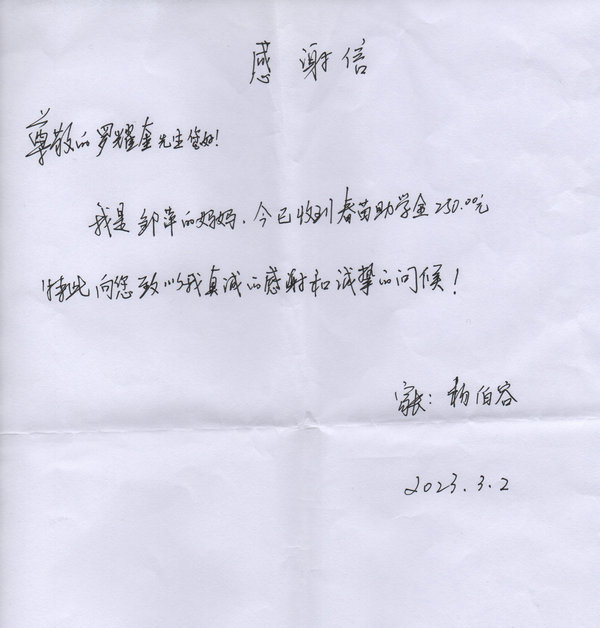 感谢信
尊敬的罗耀奎先生您好!
我是邹萍的妈妈,今已收到春苗助学金250.00元
特此向您致以我真诚的感谢和诚挚的问候!
家长:杨伯容
2023.3.2